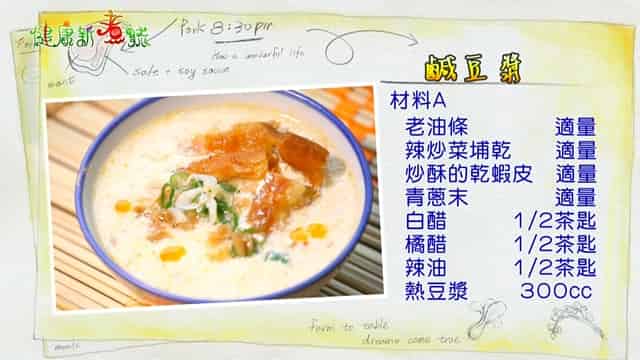 健康新煮張
Pork 8:30pm
Has a wonderful life
salt + soy sauce
鹹豆漿
材料A
老油條 適量
辣炒菜埔乾 適量
炒酥的乾蝦皮 適量
青蔥末 適量
白醋 1/2茶匙
橘醋 1/2茶匙
辣油 1/2茶匙
熱豆漿 300cc
Farm to table
dreams come true